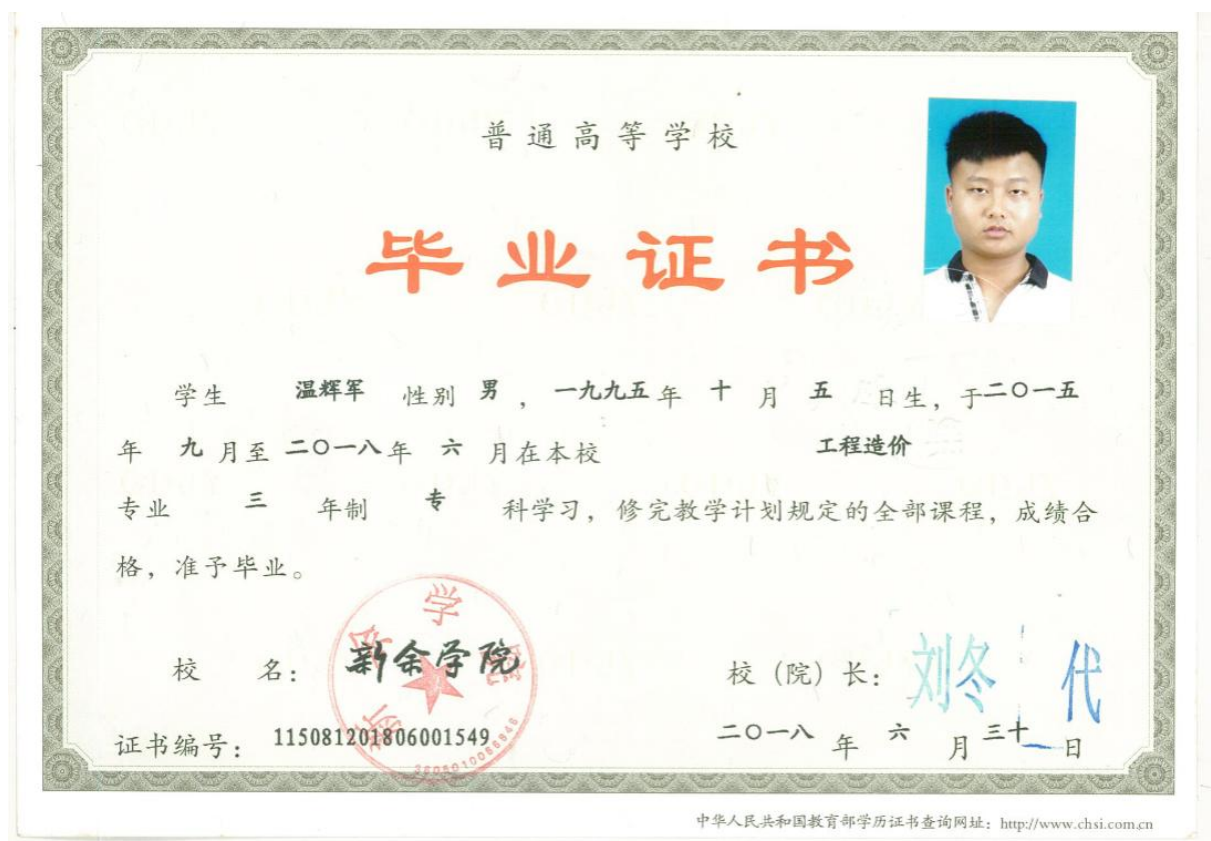 普通高等学校
毕业证书
学生 温辉军 性别 男 ，一九九五年 十 月 五 日生，于二〇一五
年 九 月至 二〇一八年 六 月在本校 工程造价
专业 三 年制 专 科学习，修完教学计划规定的全部课程，成绩合
格，准予毕业。
新余学院
校 名： 新余学院 校（院）长： 刘冬 代
证书编号： 115081201806001549 二〇一八 年 六 月 三十 日
中华人民共和国教育部学历证书查询网址：http://www.chsi.com.cn